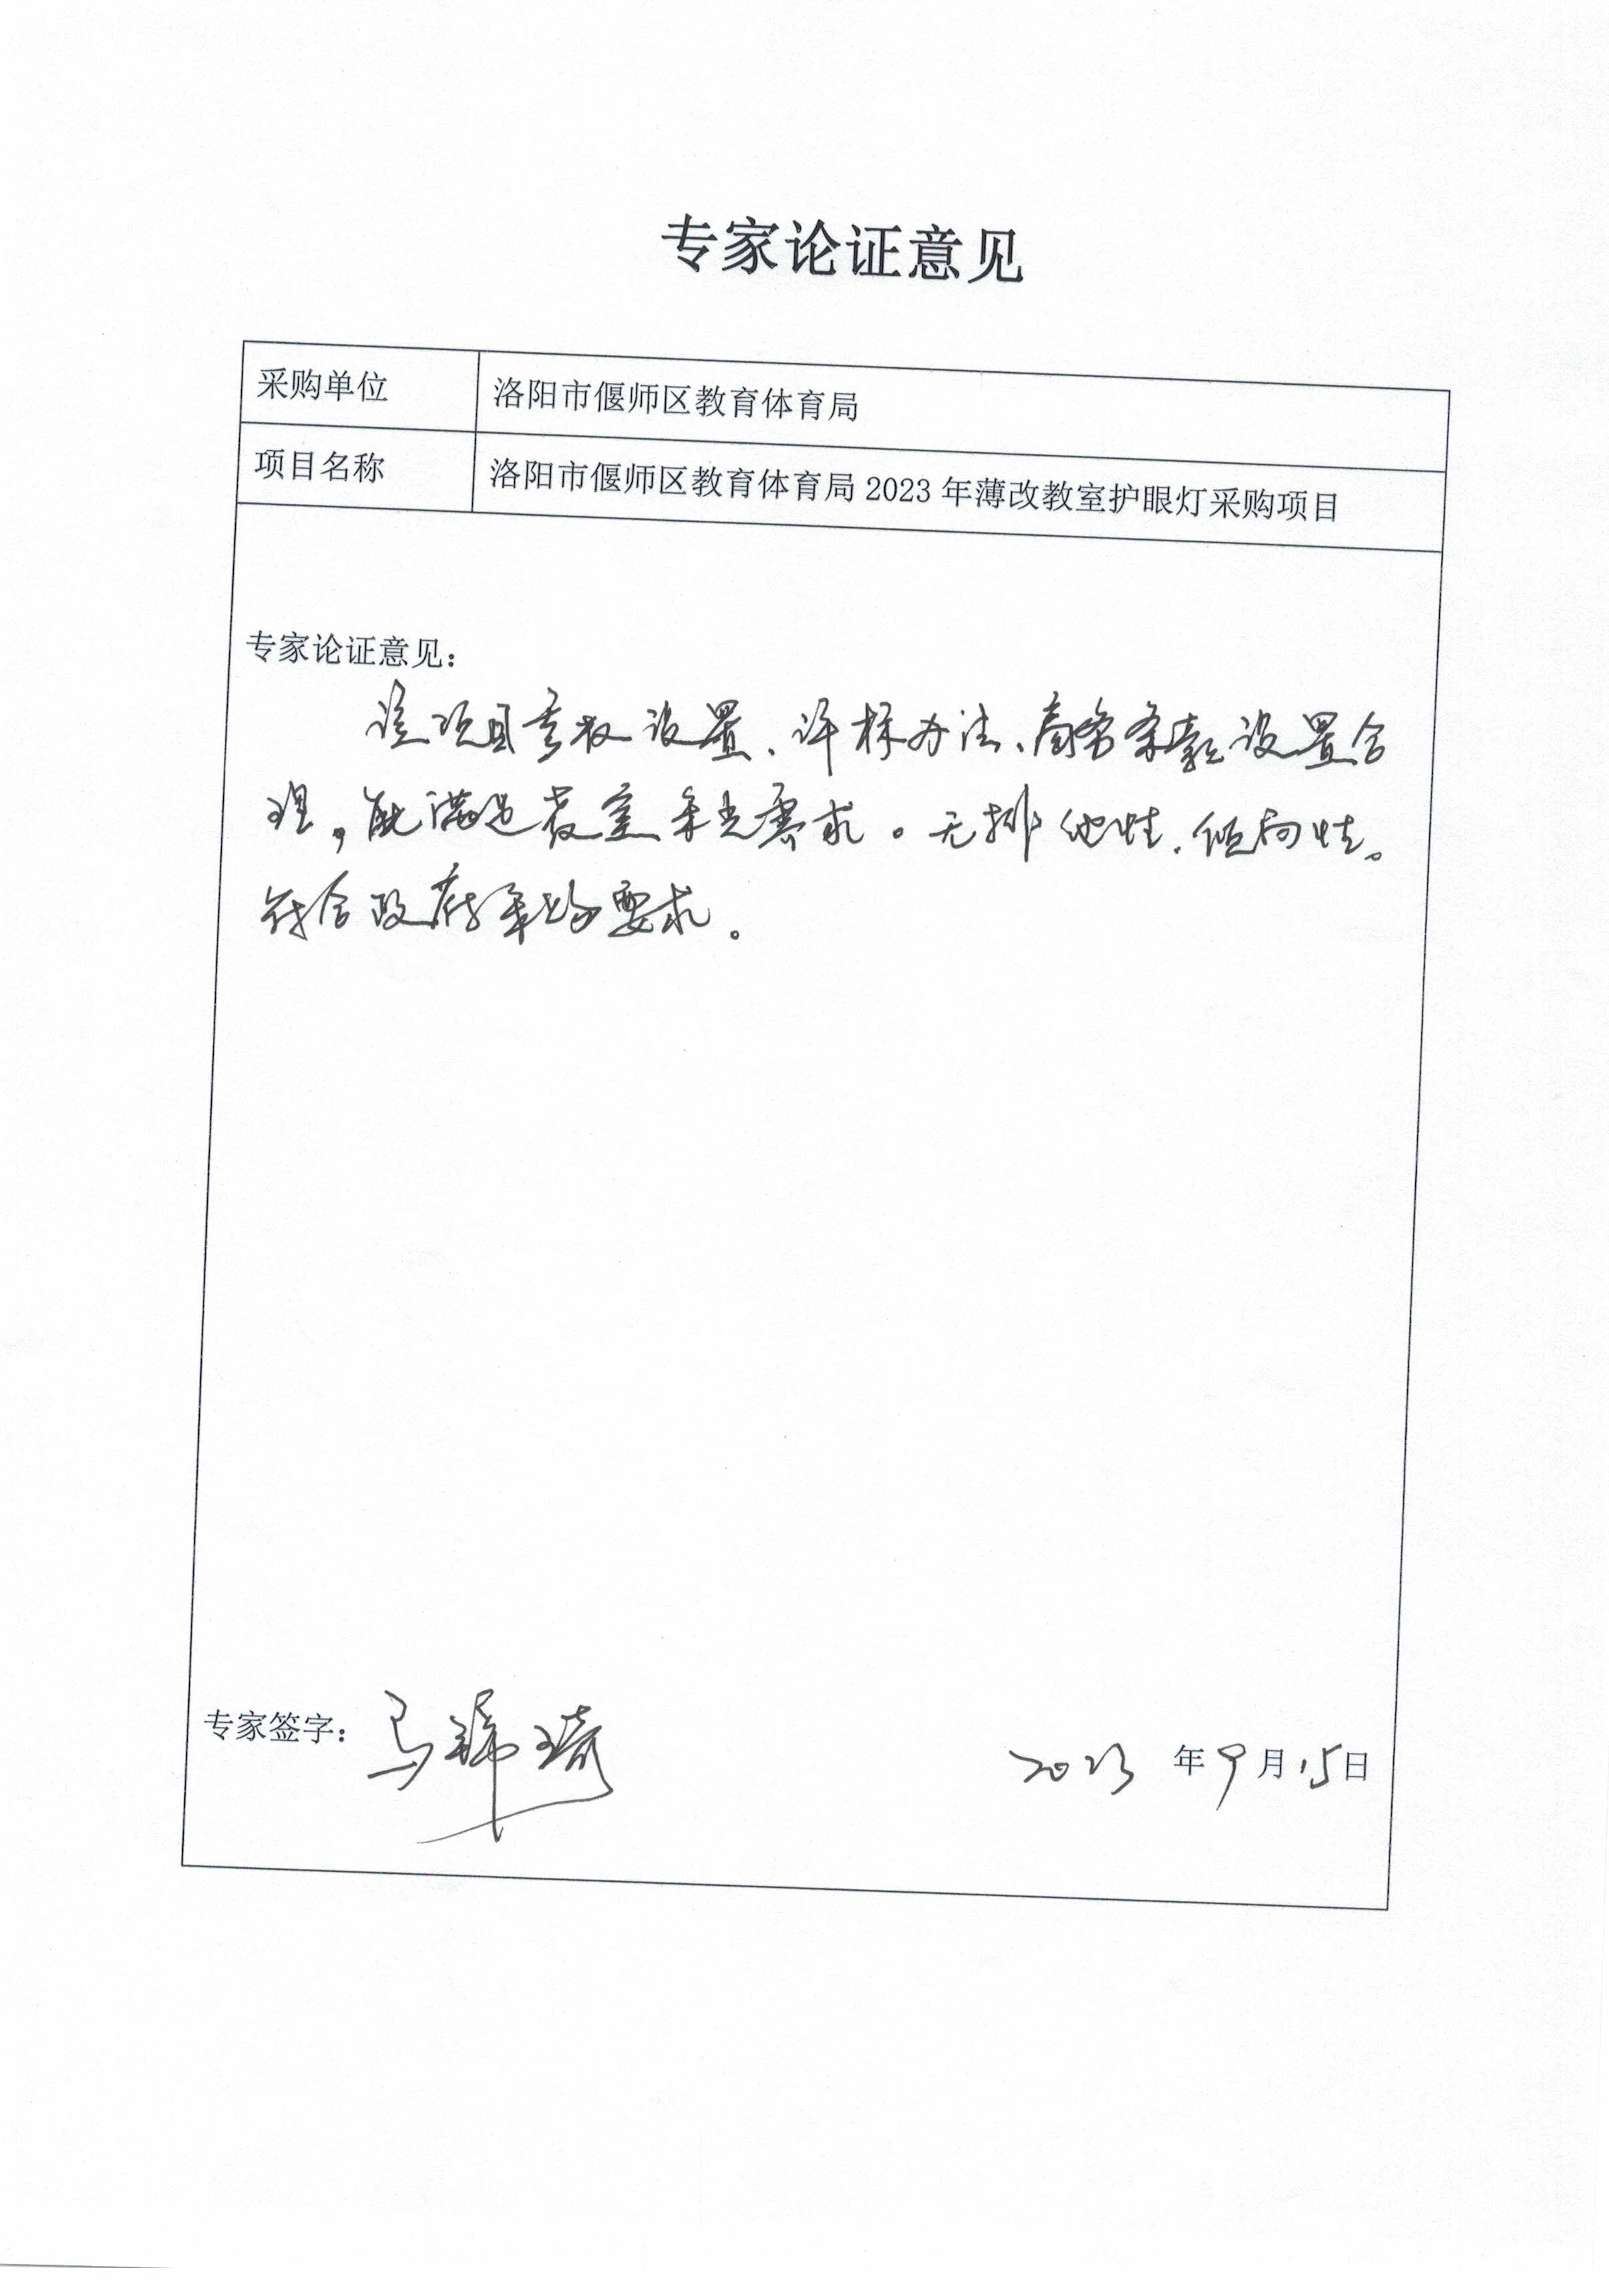 专家论证意见
采购单位 洛阳市偃师区教育体育局
项目名称 洛阳市偃师区教育体育局2023年薄改教室护眼灯采购项目
专家论证意见：
该项目参数设置、评标办法、商务条款设置合
理，能满足教室采光需求。无排他性、倾向性。
符合政府采购要求。
专家签字：马 琦 2023 年 9 月 15 日